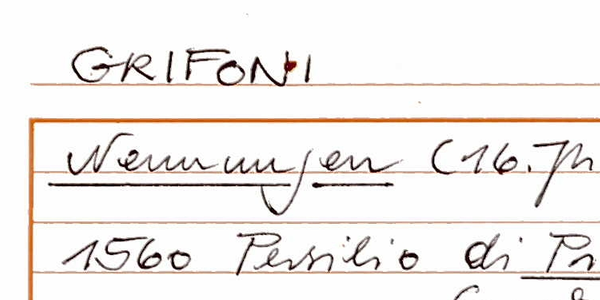 GRIFONI
Nennungen (16. Jh
1560 Persilio di Pr